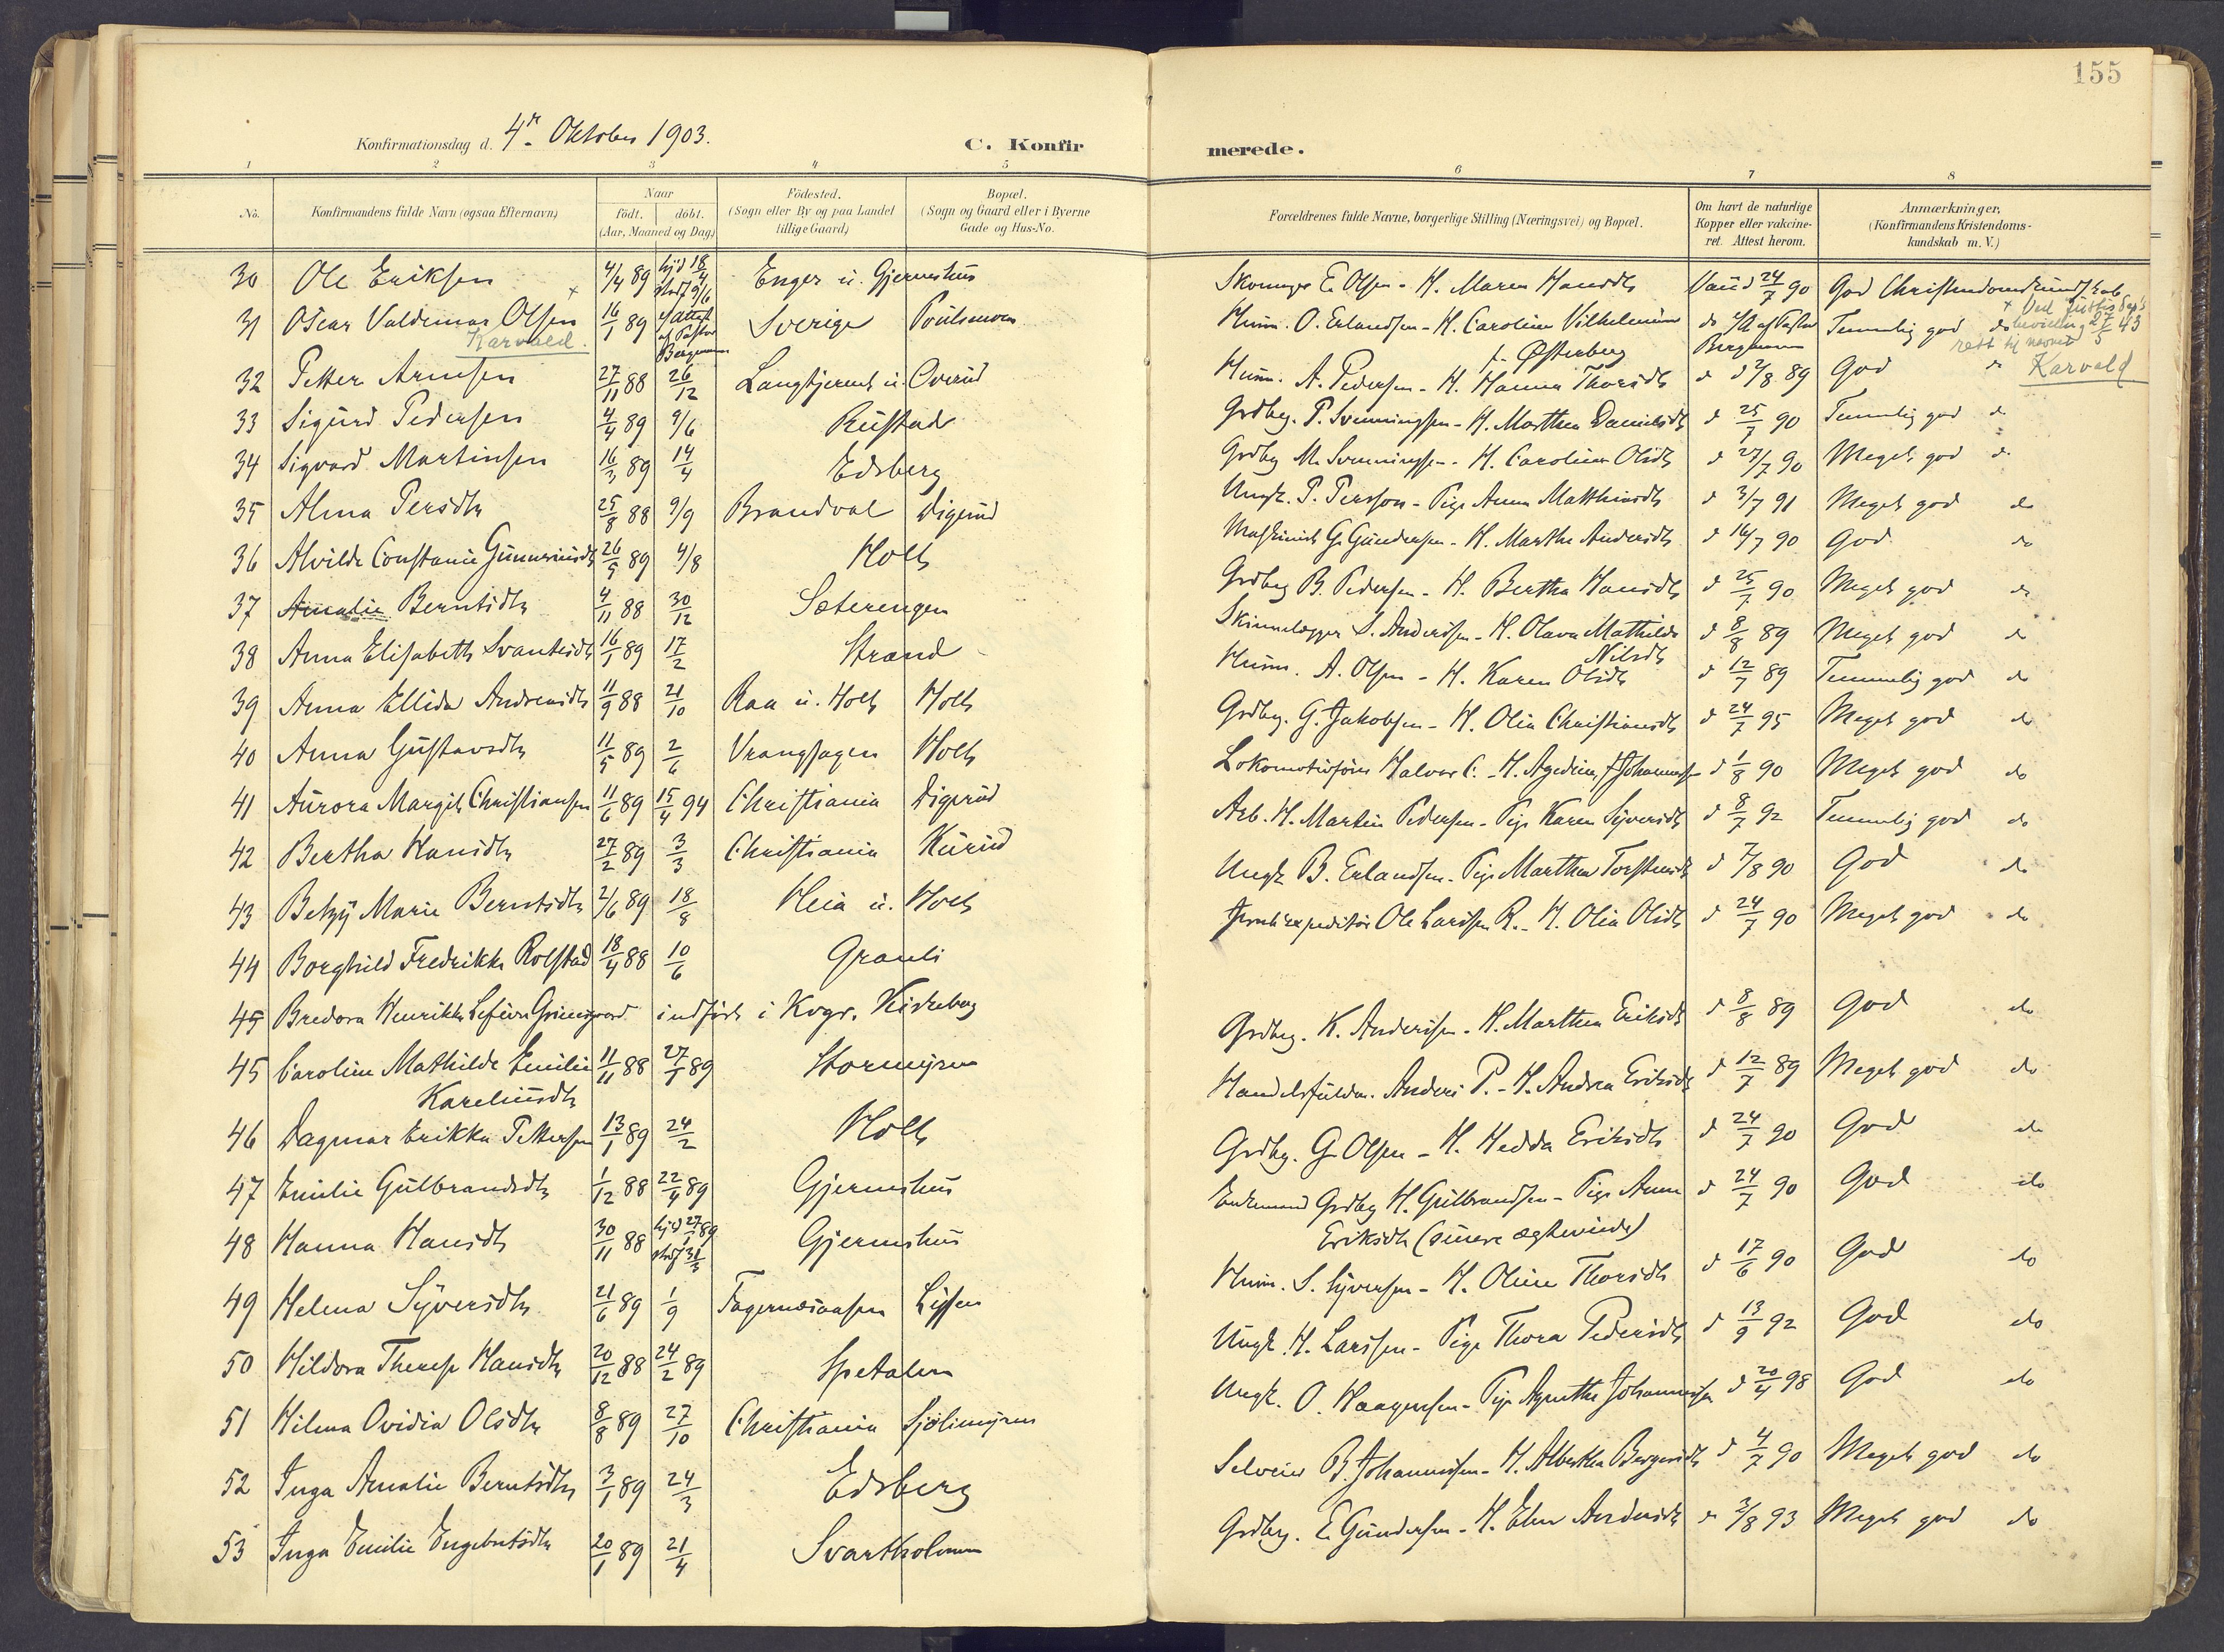 155
Konfirmationsdag d. 4de Oktober 1903.
C. Konfirmerede.
1 2 3 4 5 6 7 8
No. Konfirmandens fulde Navn (ogsaa Efternavn) Naar født. døbt. (Aar, Maaned og Dag) Födested. (Sogn eller By og paa Landet tillige Gaard) Bopæl. (Sogn og Gaard eller i Byerne Gade og Hus-No. Forældrenes fulde Navne, borgerlige Stilling (Næringsvei) og Bopæl. Om havt de naturlige Kopper eller vakcineret. Attest herom. Anmærkninger. (Konfirmandens Kristendomskundskab m. V.)
30 Ole Eriksen 4/4 89 hjd 18/4 stadf 9/6 Enger u. Gjermshus Skomager E. Olsen - H. Maren Hansdtr Vacc 24/7 90 God Christendomskundskab
31 Oscar Valdemar Olsen x 16/1 89 attest af Pastor Bergmann Sverige Poulsmoen Husm. O. Erlandsen - H. Caroline Vilhelmine f. Østerberg do Pastor Bergmann Temmelig god do
Karvald
x Ved Justis Dep's bevilling 27/5 43 rett til navnet Karvald
32 Petter Arnesen 27/11 88 26/12 Overud Husm. A. Pedersen - H. Hanna Thorsdtr d 2/8 89 God do
33 Sigurd Pedersen 4/4 89 9/6 Rustad Grdbrg. P. Svenningsen - H. Marthea Danielsdtr d 25/7 90 Temmelig god do
34 Sigvard Martinsen 16/3 89 14/4 Edsberg Grdbrg M. Svenningsen - H. Caroline Olsdtr d 27/7 90 Meget god do
35 Alma Persdtr 25/8 88 9/9 Brandval Digerud Ungk. P. Persson - Pige Anna Matthisdtr d 3/7 91 Meget god do
36 Alvilde Constance Gunneriusdtr 26/5 89 4/8 Holt Maskinist G. Gundersen - H. Marthe Andersdtr d 16/7 90 God do
37 Amalie Berntsdtr 4/11 88 30/12 Sæterengen Grdbrg B. Pedersen - H. Bertha Hansdtr d 25/7 90 Meget god do
38 Anna Elisabeth Svantesdtr 16/1 89 17/2 Strand Skinnelægger S. Andersen - H. Olava Mathilde Nilsdtr d 8/8 89 Meget god do
39 Anna Ellida Andreasdtr 11/9 88 21/10 Raa u. Holt Holt Husm. A. Olsen - H. Karen Olsdtr d 12/7 89 Temmelig god do
40 Anna Gustavsdtr 11/5 89 2/6 Vranghagen Holt Grdbrg. G. Jakobsen - H. Olia Christiansdtr d 24/7 95 Meget god do
41 Aurora Margit Christiansen 11/6 89 15/4 94 Christiania Digerud Lokomotivfører Halvor C. - H. f Johannessen d 1/8 90 Meget god do
42 Bertha Hansdtr 27/2 89 3/3 Christiania Kurud Arb. H. Martin Pedersen - Pige Karen Syversdtr d 8/7 92 Temmelig god do
43 Betzy Marie Berntsdtr 2/6 89 18/8 Heia u. Holt Ungk B. Erlandsen - Pige Marthea Torstensdtr d 7/8 90 God do
44 Borghild Fredrikke Rolstad 18/4 88 10/6 Granli Jernb.expeditør Ole Larssen R. - H. Olia Olsdtr d 24/7 90 Meget god do
45 Bredora Henrikke Grimsgaard indført i Kvgr. Kirkeberg
45 Caroline Mathilde Emilie Kareliusdtr 11/11 88 27/1 89 Stormyren Grdbrg. K. Andersen - H. Marthea Eriksdtr d 8/8 89 God do
46 Dagmar Erikka Pettersen 13/1 89 24/2 Holt Handelsfuldm. Anders P. - H. Andrea Eriksdtr d 12/7 89 Meget god do
47 Emilie Gulbrandsdtr 1/12 88 22/4 89 Gjermshus Grdbrg. G. Olsen - H. Hedda Eriksdtr d 24/7 90 God do
48 Hanna Hansdtr 30/11 88 hjd 27/1 89 stadf 31/3 Gjermshus Enkemand Grdbrg H. Gulbrandsen - Pige Anne Eriksdtr (senere ægteviede) d 24/7 90 God do
49 Helena Syversdtr 21/6 89 1/9 Fagernæsaasen Husm. S. Syversen - H. Oline Thorsdtr d 17/6 90 God do
50 Hildora Therese Hansdtr 20/12 88 24/2 89 Spetalen Ungk. H. Larssen - Pige Thora Pedersdtr d 13/9 92 God do
51 Hilma Ovidia Olsdtr 8/8 89 27/10 Christiania Sjølimyren Ungk. O. Haagensen - Pige Agnethe Johannessen d 20/4 98 God do
52 Inga Amalie Berntsdtr 3/1 89 24/3 Edsberg Selveier B. Johannessen - H. Alberthe Bergersdtr d 4/7 90 Meget god do
53 Inga Emilie Engebretsdtr 20/1 89 21/4 Svartholmen Grdbrg. E. Gundersen - H. Elen Andersdtr do 3/8 93 Meget god do